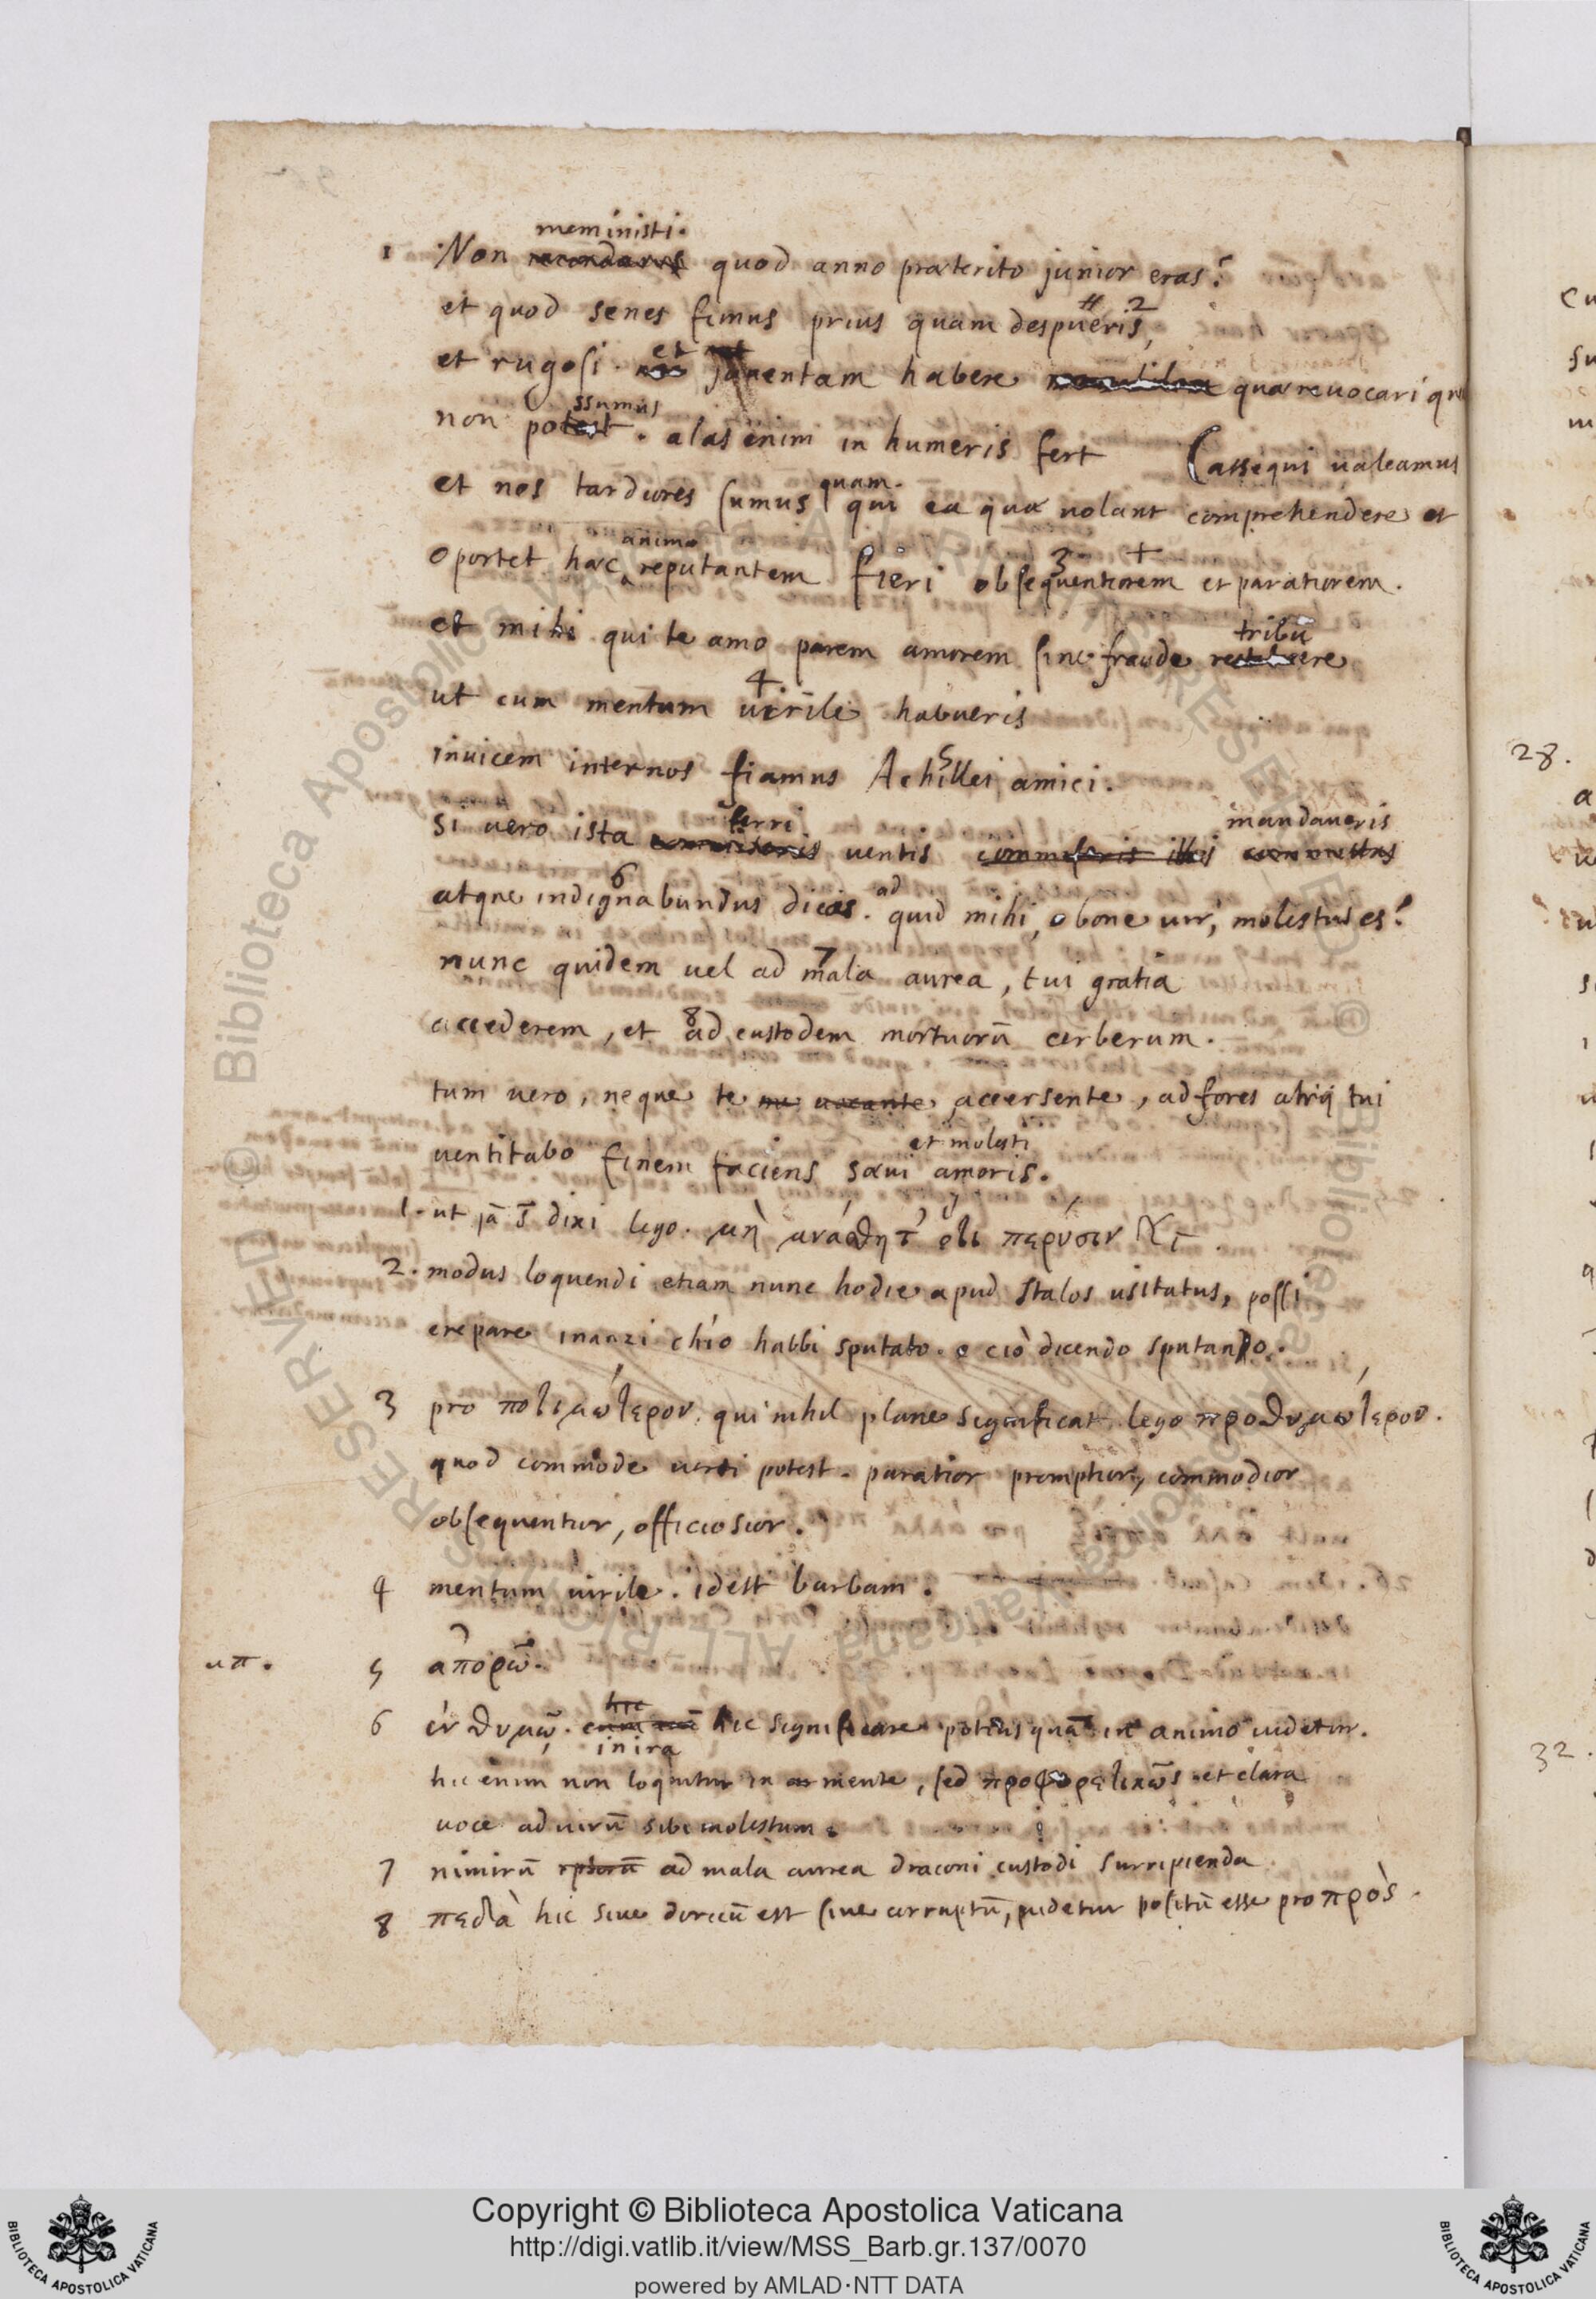 meministi.
1 Non recordaris quod anno præterito junior eras?
et quod senes simus prius quam despueris, # 2
et rugosi. et juventam habere quæ revocari
non potest ssumus. alas enim in humeris fert (assequi valeamus
et nos tardiores sumus quam. qui ea quæ volant comprehendere et
oportet hæc animo reputantem fieri obsequentiorem 3 + et paratiorem.
et mihi qui te amo parem amorem sine fraude restituere tribu
ut cum mentum virile 4 habueris
invicem inter nos fiamus Achillei 5 amici.
si vero ista ferri ventis commiseris mandaveris
atque indignabundus 6 dicas. ad quid mihi, o bone vir, molestus es?
nunc quidem vel ad mala 7 aurea, tui gratia
accederem, et ad 8 custodem mortuorū cerberum.
tum vero, neque te vocante accersente, ad fores atrij tui
ventitabo finem faciens sævi et molesti amoris.
1. ut jā dixi lego. μὴ
2. modus loquendi etiam nunc hodie apud Italos usitatus, possi
crepare inanzi ch'io habbi sputato. e ciò dicendo sputando.
3 pro ποτιμώτερον. qui nihil plane significat. lego προθυμώτερον.
quod commode verti potest. paratior promptior, commodior
obsequentior, officiosior.
4 mentum virile. idest barbam.
5 ἀπορῶ.
6 ἐν θυμῷ. hic in ira hic significare potius quā in animo videtur.
hic enim non loquitur in mente, sed προφορικῶς et clara
voce ad virū sibi molestum.
7 nimirū ad mala aurea draconi custodi surripienda
8 πεδὰ hic sive doricū est sive corruptū, videtur positū esse pro πρὸς.
28.
32.
© Biblioteca Apostolica Vaticana ALL RIGHTS RESERVED
Copyright © Biblioteca Apostolica Vaticana
http://digi.vatlib.it/view/MSS_Barb.gr.137/0070
powered by AMLAD·NTT DATA
BIBLIOTECA APOSTOLICA VATICANA
BIBLIOTECA APOSTOLICA VATICANA